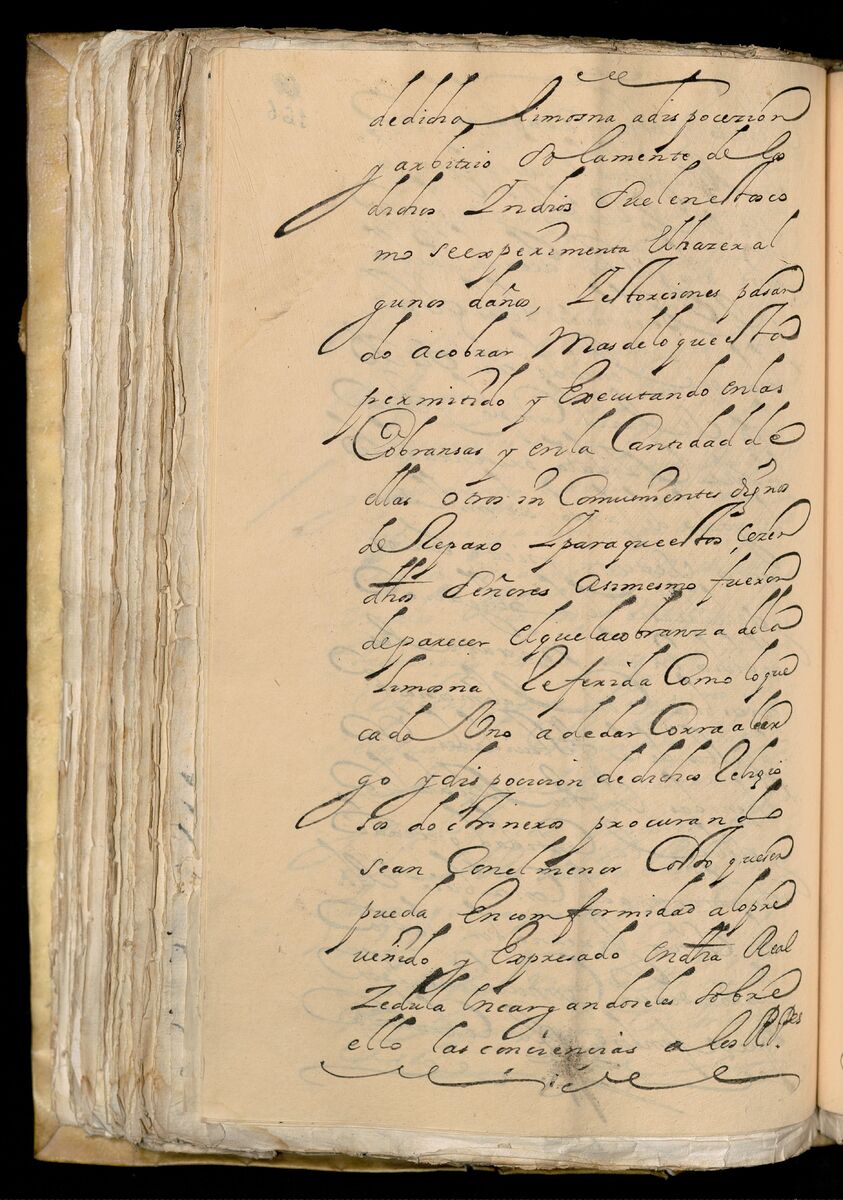 dedicha limosna adispocezion
y arbitrio solamente de los
dichos Indios suelen estos co
mo seexperimenta el hazer al
gunos daños, Yestorciones pasan
do acobrar Mas de lo que está
permitido y Executando en las
Cobransas y en la Cantidad de
ellas otros in Comuenientes dignos
de Reparo Y para que estos cezen
dhos Señores asimesmo fueron
de parecer el que la cobranza de la
limosna Referida Como lo que
cada Uno a de dar Corra a car
go y dispocicion de dichos Religio
sos doctrineros procurando
sean Con el menor Costo que ser
pueda En comformidad a lo pre
uenido y Expresado en dha Real
Zedula Encargandoseles sobre
ello las conciencias a los RR.Pes